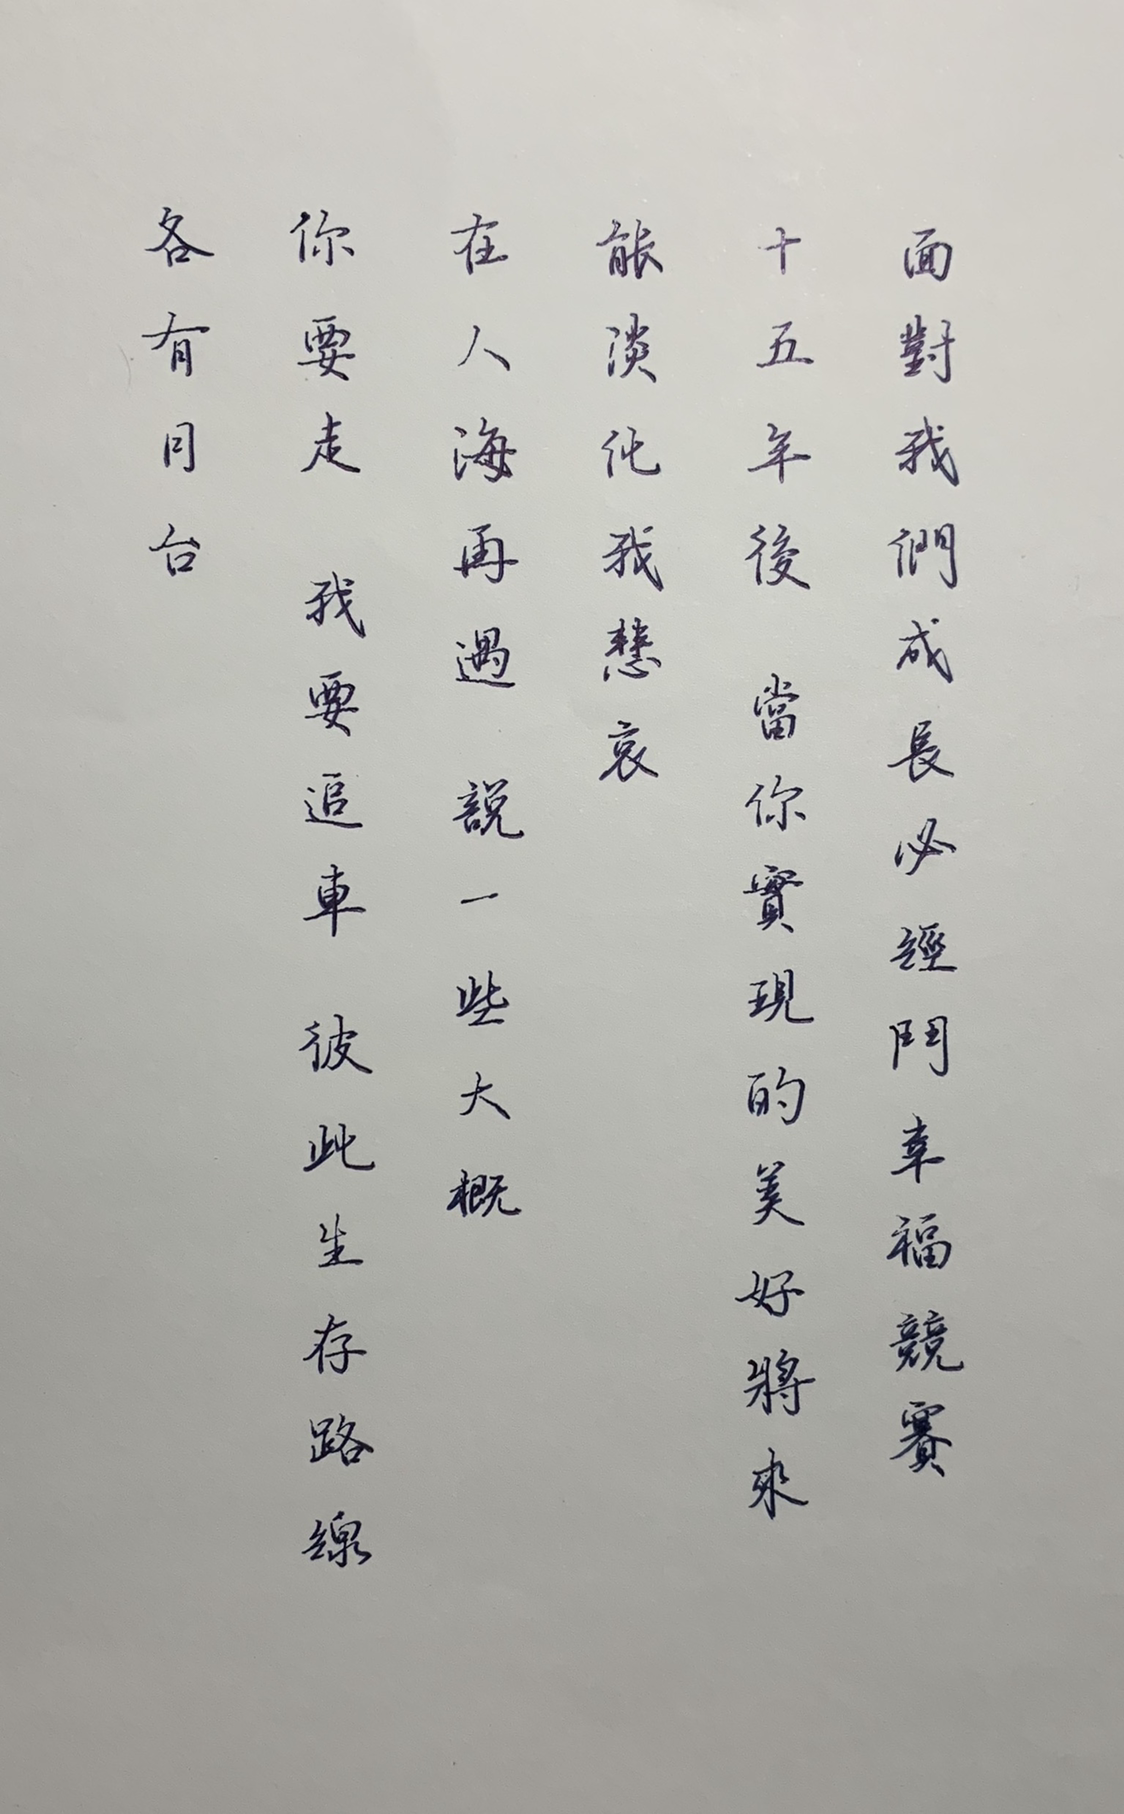 面對我們成長必經鬥幸福競賽
十五年後 當你實現的美好將來
能淡化我悲哀
在人海再遇 說一些大概
你要走 我要追車 彼此生存路線
各有月台